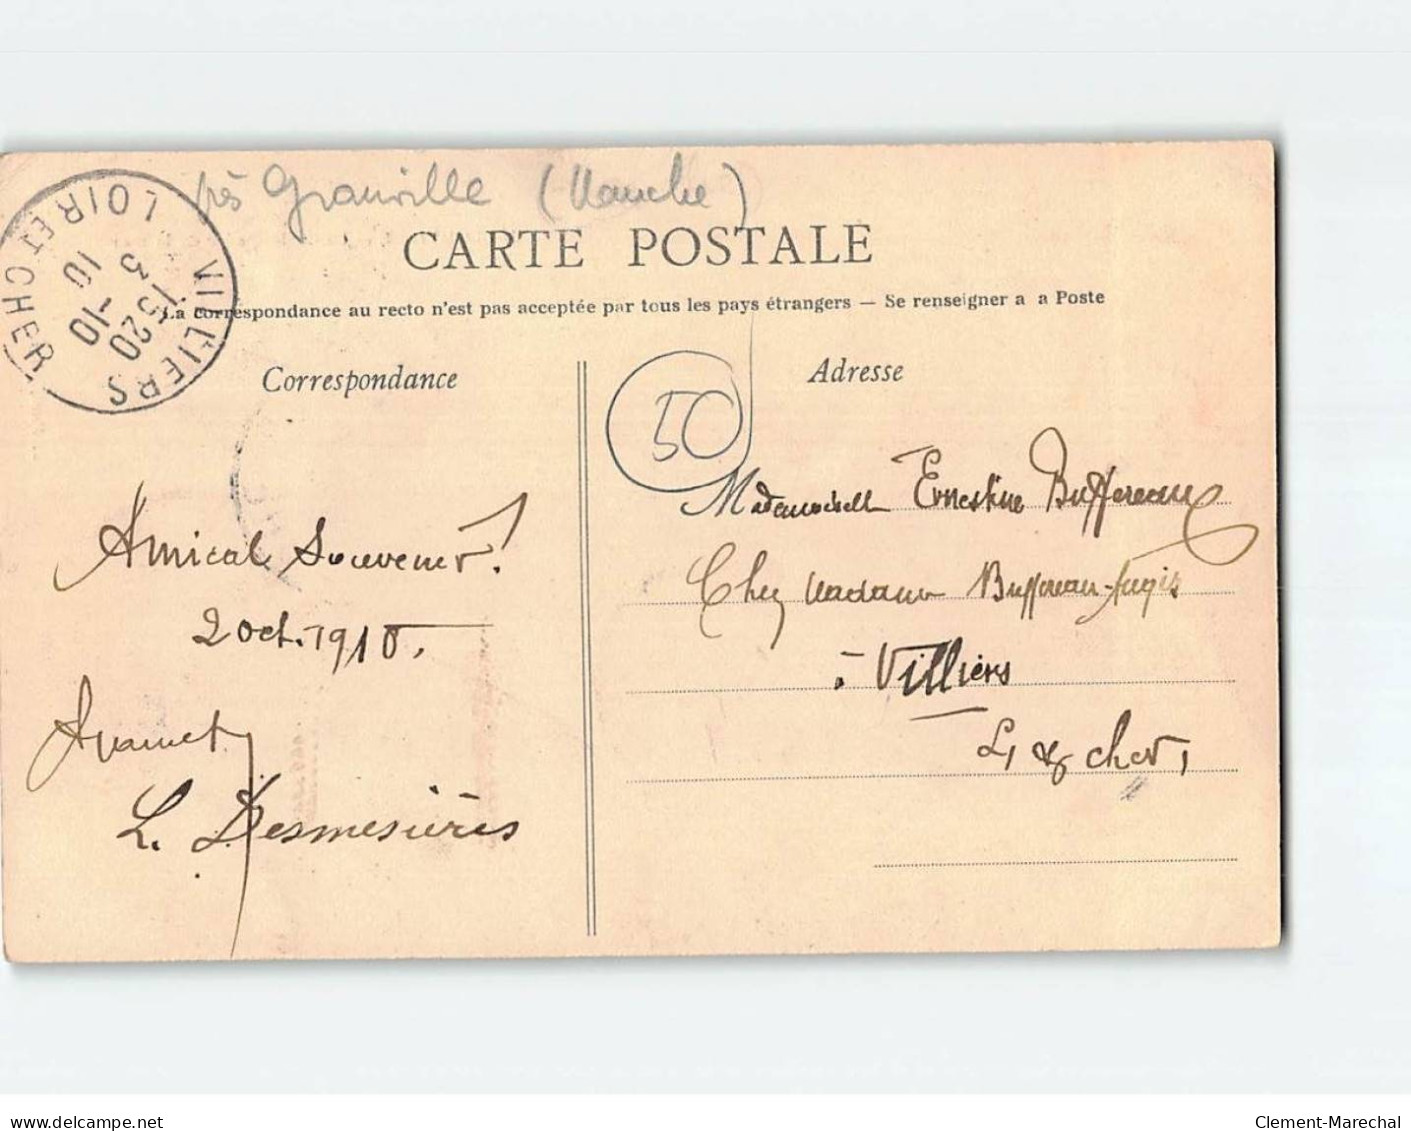 près Granville (Manche)
CARTE POSTALE
La correspondance au recto n'est pas acceptée par tous les pays étrangers — Se renseigner a a Poste
VILLIERS
LOIR ET CHER
15 20
3 -10
10
Correspondance
Amical Souvenir!
2 oct. 1910.
L. Desmesières
Adresse
50
Mademoiselle Ernestine Buffereau
Chez Madame Buffereau-Fugis
à Villiers
L & cher,
delcampe.net
Clement-Marechal